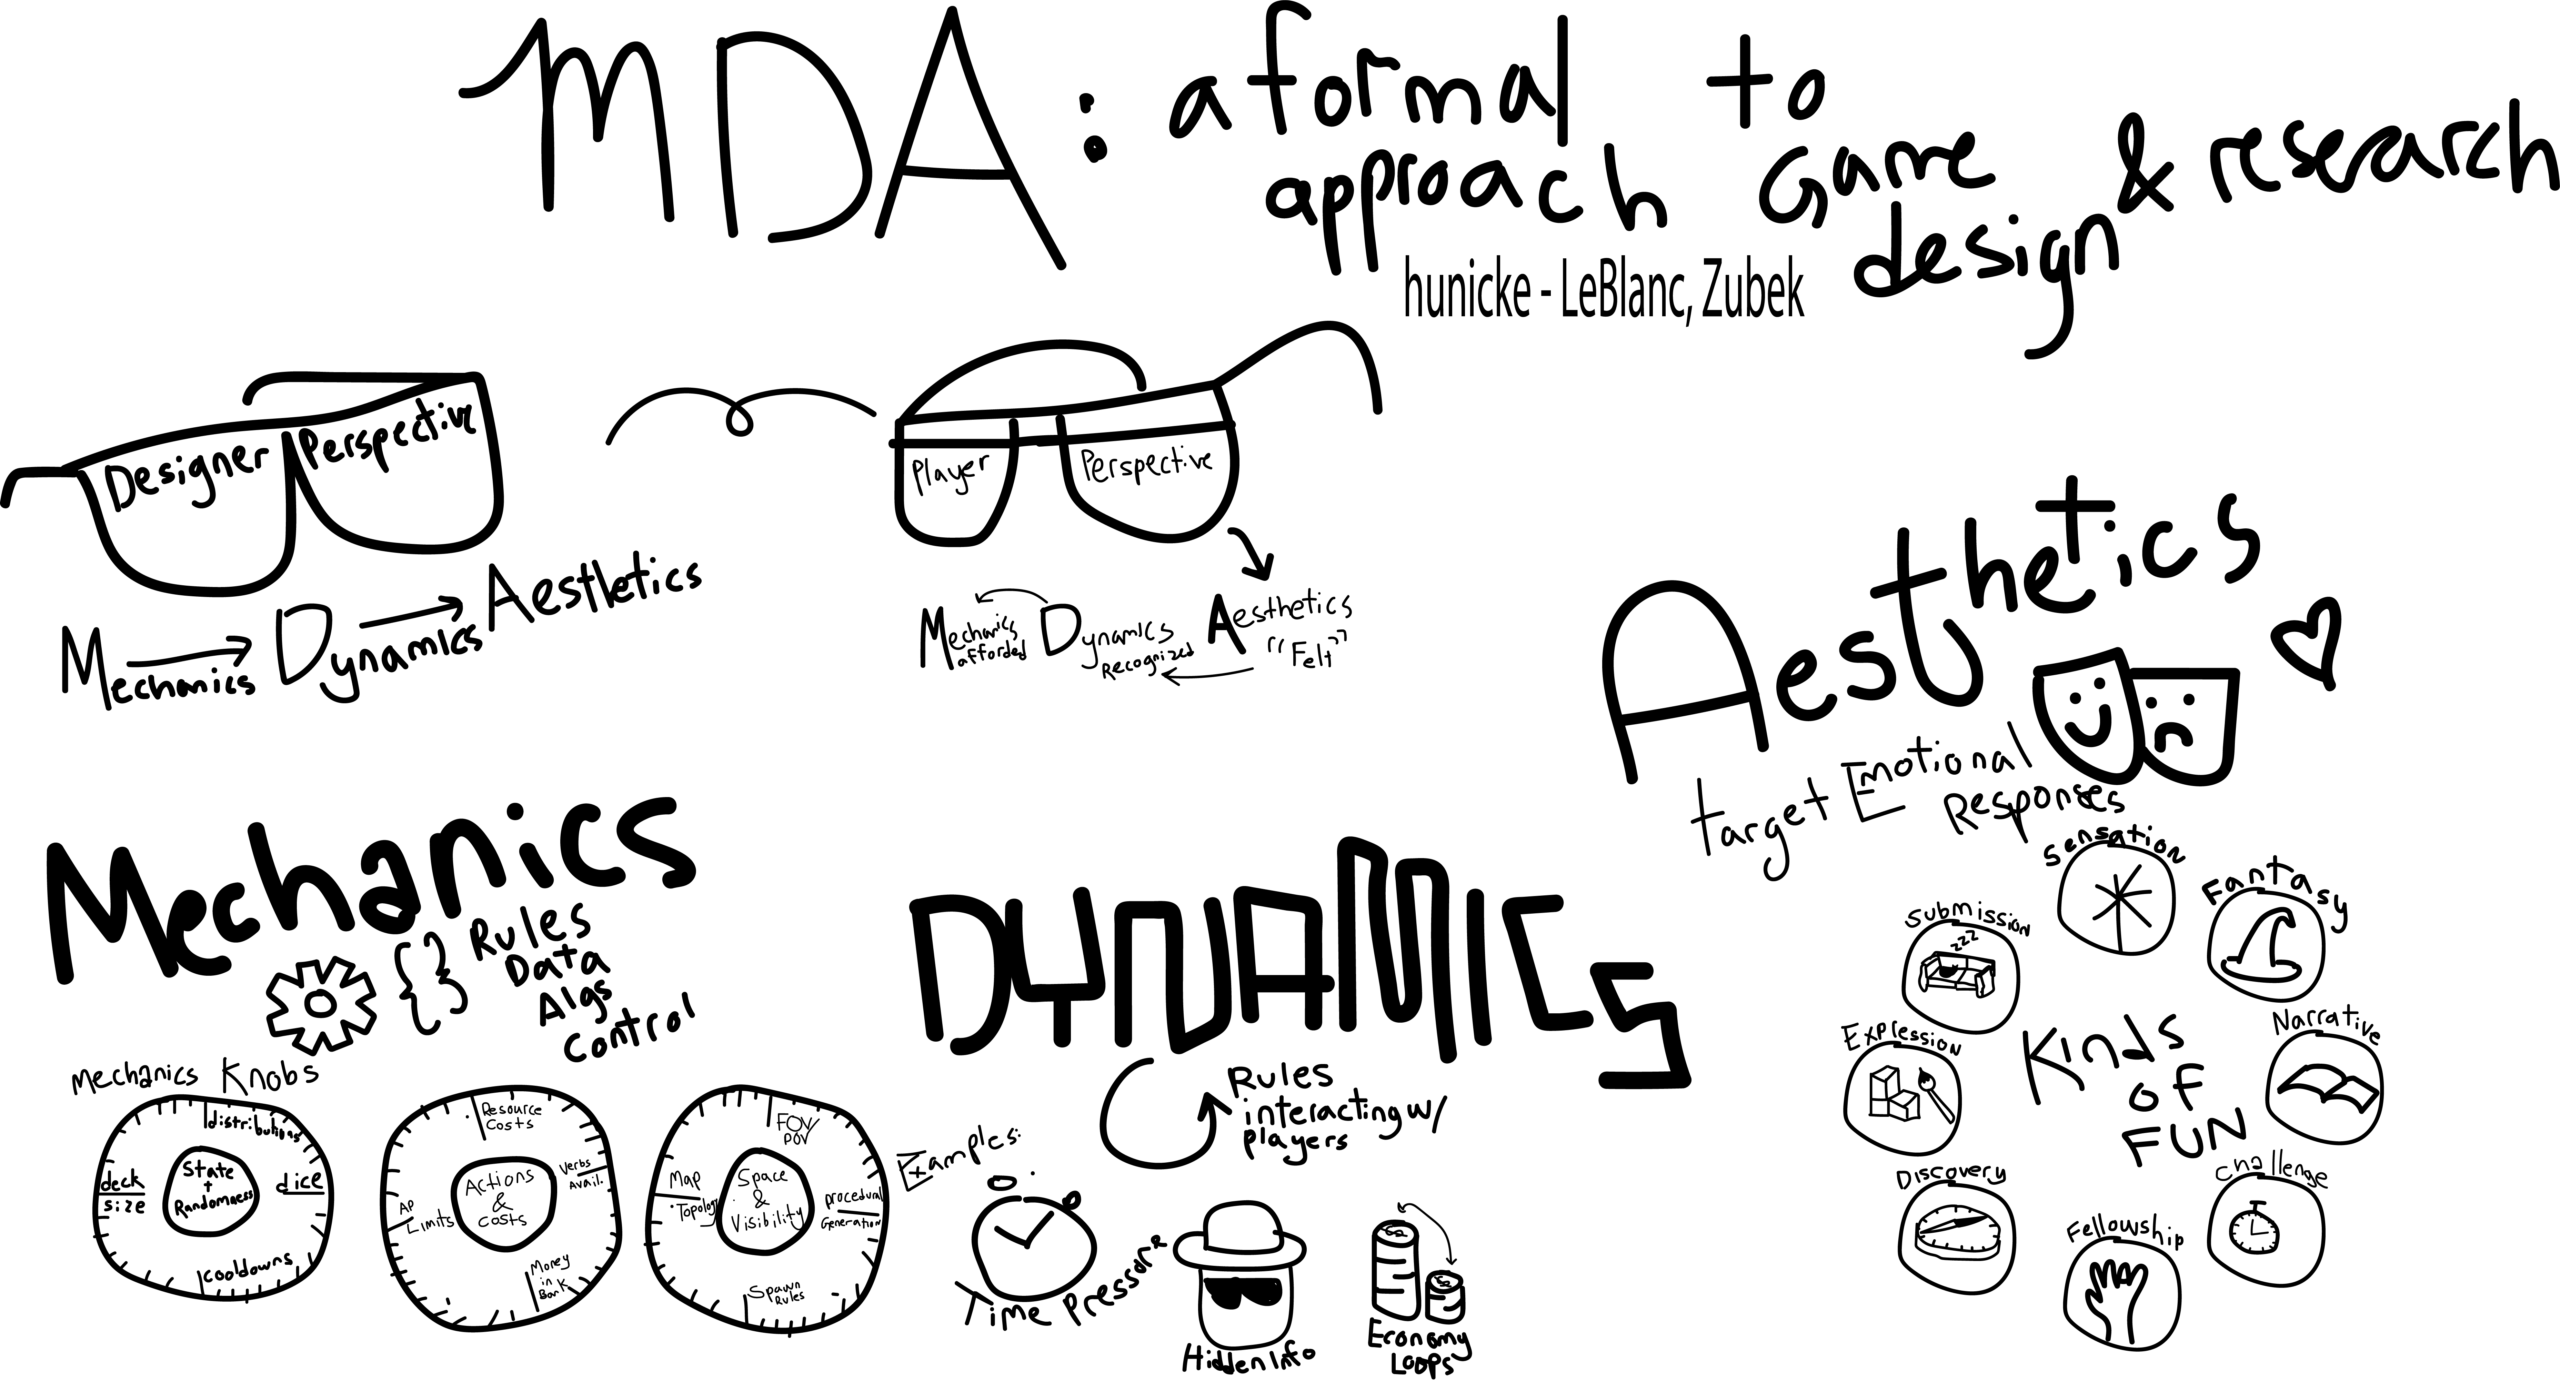 MDA: a formal approach to Game design & research
hunicke - LeBlanc, Zubek
Designer Perspective
Mechanics Dynamics Aesthetics
Player Perspective
Mechanics afforded
Dynamics Recognized
Aesthetics "Felt"
Mechanics
{ } Rules
Data
Algs
Control
Mechanics Knobs
State + Randomness
distributions
dice
cooldowns
deck size
Actions & costs
Resource Costs
Verbs Avail.
Money in Bank
AP Limits
Space & Visibility
FOV/POV
procedural Generation
Spawn Rules
Map Topology
DYNAMICS
Rules
interacting w/
players
Examples:
Hidden Info
Economy
Loops
Aesthetics
Target Emotional
Responses
Kinds
OF
FUN
Sensation
Fantasy
Narrative
Challenge
Fellowship
Discovery
Expression
Submission
zzz
Time Pressor